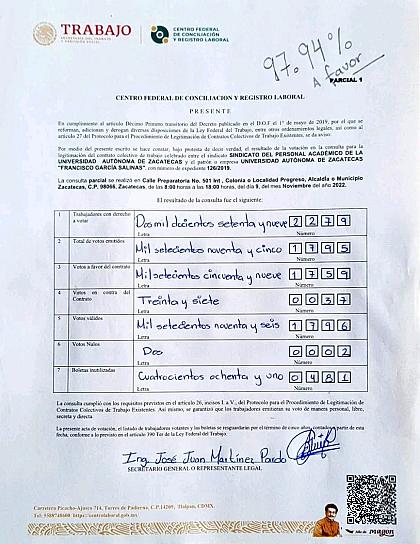 TRABAJO
SECRETARÍA DEL TRABAJO Y PREVISIÓN SOCIAL
CENTRO FEDERAL
DE CONCILIACIÓN
Y REGISTRO LABORAL
97.94%
A favor
PARCIAL 1
CENTRO FEDERAL DE CONCILIACION Y REGISTRO LABORAL
P R E S E N T E
En cumplimiento al artículo Décimo Primero transitorio del Decreto publicado en el D.O.F el 1° de mayo de 2019, por el que se
reforman, adicionan y derogan diversas disposiciones de la Ley Federal del Trabajo, entre otros ordenamientos legales, así como al
artículo 27 del Protocolo para el Procedimiento de Legitimación de Contratos Colectivos de Trabajo Existentes, se da aviso:
Por medio del presente escrito se hace constar, bajo protesta de decir verdad, el resultado de la votación en la consulta para la
legitimación del contrato colectivo de trabajo celebrado entre el sindicato SINDICATO DEL PERSONAL ACADÉMICO DE LA
UNIVERSIDAD AUTÓNOMA DE ZACATECAS y el patrón o empresa UNIVERSIDAD AUTÓNOMA DE ZACATECAS
"FRANCISCO GARCÍA SALINAS", con número de expediente 126/2019.
La consulta parcial se realiza en Calle Preparatoria No. 501 Int , Colonia o Localidad Progreso, Alcaldía o Municipio
Zacatecas, C.P. 98065, Zacatecas, de las 8:00 horas a las 18:00 horas, del día 9, del mes Noviembre del año 2022.
El resultado de la consulta fue el siguiente:
1 Trabajadores con derecho a votar Dos mil docientos setenta y nueve 2 2 7 9
Letra Número
2 Total de votos emitidos Mil setecientos noventa y cinco 1 7 9 5
Letra Número
3 Votos a favor del contrato Mil setecientos cincuenta y nueve 1 7 5 9
Letra Número
4 Votos en contra del Contrato Treinta y siete 0 0 3 7
Letra Número
5 Votos válidos Mil setecientos noventa y seis 1 7 9 6
Letra Número
6 Votos Nulos Dos 0 0 0 2
Letra Número
7 Boletas inutilizadas Cuatrocientos ochenta y uno 0 4 8 1
Letra Número
La consulta cumplió con los requisitos previstos en el artículo 26, incisos I. a V., del Protocolo para el Procedimiento de Legitimación de
Contratos Colectivos de Trabajo Existentes. Así mismo, se garantizó que los trabajadores emitieran su voto de manera personal, libre,
secreta y directa.
La presente acta de votación, el listado de trabajadores votantes y las boletas se resguardarán por el término de cinco años, contados a partir de esta
fecha, conforme a lo previsto en el artículo 390 Ter de la Ley Federal del Trabajo.
Ing. José Juan Martínez Pardo
SECRETARIO GENERAL O REPRESENTANTE LEGAL
Carretera Picacho-Ajusco 714, Torres de Padierna, C.P.14209, Tlalpan, CDMX.
Tel: 5588748600 https://centrolaboral.gob.mx
Año de Magón